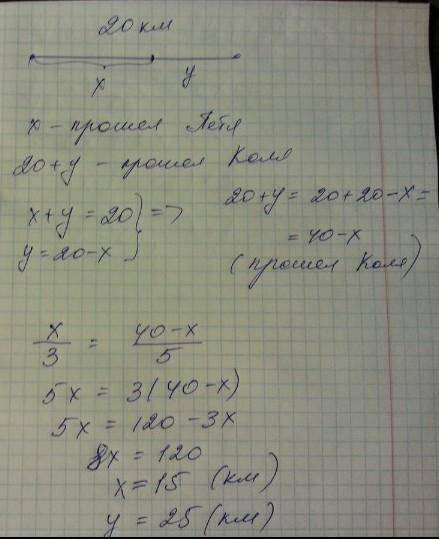 20 км
x y
x – прошел Петя
20+y – прошел Коля
x+y = 20 } =>
y = 20-x
20+y = 20+20-x =
= 40-x
(прошел Коля)
x/3 = 40-x/5
5x = 3(40-x)
5x = 120-3x
8x = 120
x = 15 (км)
y = 25 (км)